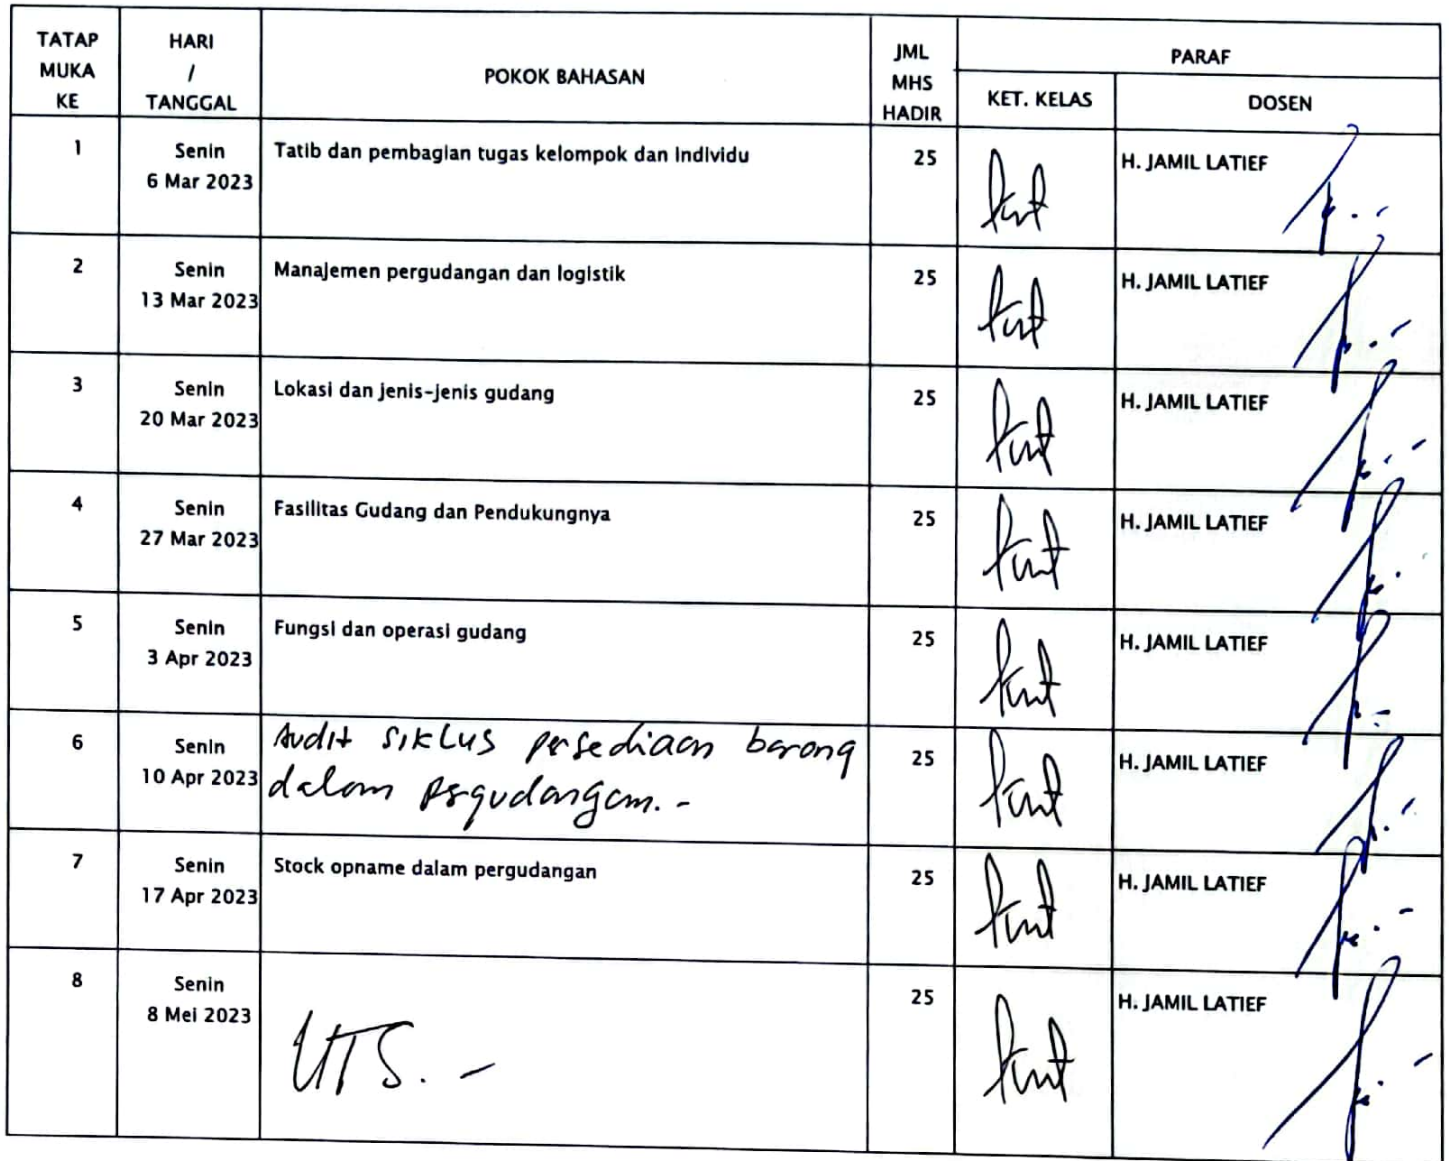 TATAP MUKA KE
HARI / TANGGAL
POKOK BAHASAN
JML MHS HADIR
PARAF
KET. KELAS
DOSEN
1
Senin
6 Mar 2023
Tatib dan pembagian tugas kelompok dan individu
25
H. JAMIL LATIEF
2
Senin
13 Mar 2023
Manajemen pergudangan dan logistik
25
H. JAMIL LATIEF
3
Senin
20 Mar 2023
Lokasi dan jenis-jenis gudang
25
H. JAMIL LATIEF
4
Senin
27 Mar 2023
Fasilitas Gudang dan Pendukungnya
25
H. JAMIL LATIEF
5
Senin
3 Apr 2023
Fungsi dan operasi gudang
25
H. JAMIL LATIEF
6
Senin
10 Apr 2023
Audit siklus persediaan barang
dalam pergudangan. -
25
H. JAMIL LATIEF
7
Senin
17 Apr 2023
Stock opname dalam pergudangan
25
H. JAMIL LATIEF
8
Senin
8 Mei 2023
UTS. -
25
H. JAMIL LATIEF